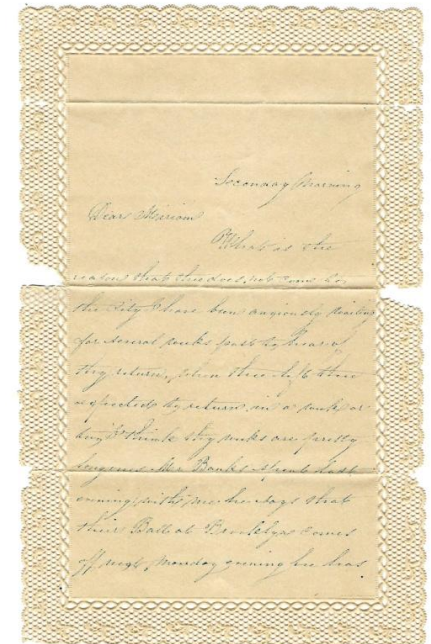 Seconday Morning
Dear Miriam
What is the
reason that thee does not come to
the City I have been anxiously waiting
for several weeks past to hear of
thy return, when thee left thee
expected to return in a week or
two I think thy weeks are pretty
long ones Mr Banks spent last
evening with me he says that
their Ball at Brooklyn comes
off next Monday evening he has